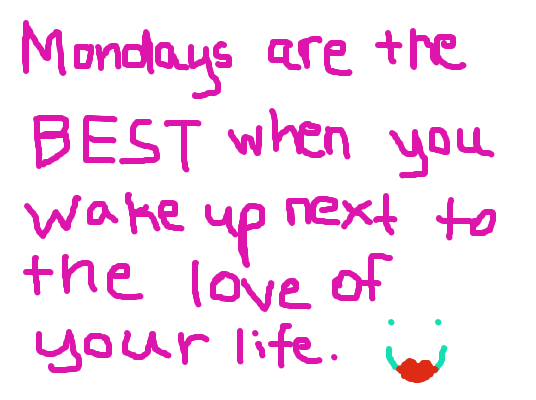 Mondays are the
BEST when you
wake up next to
the love of
your life.